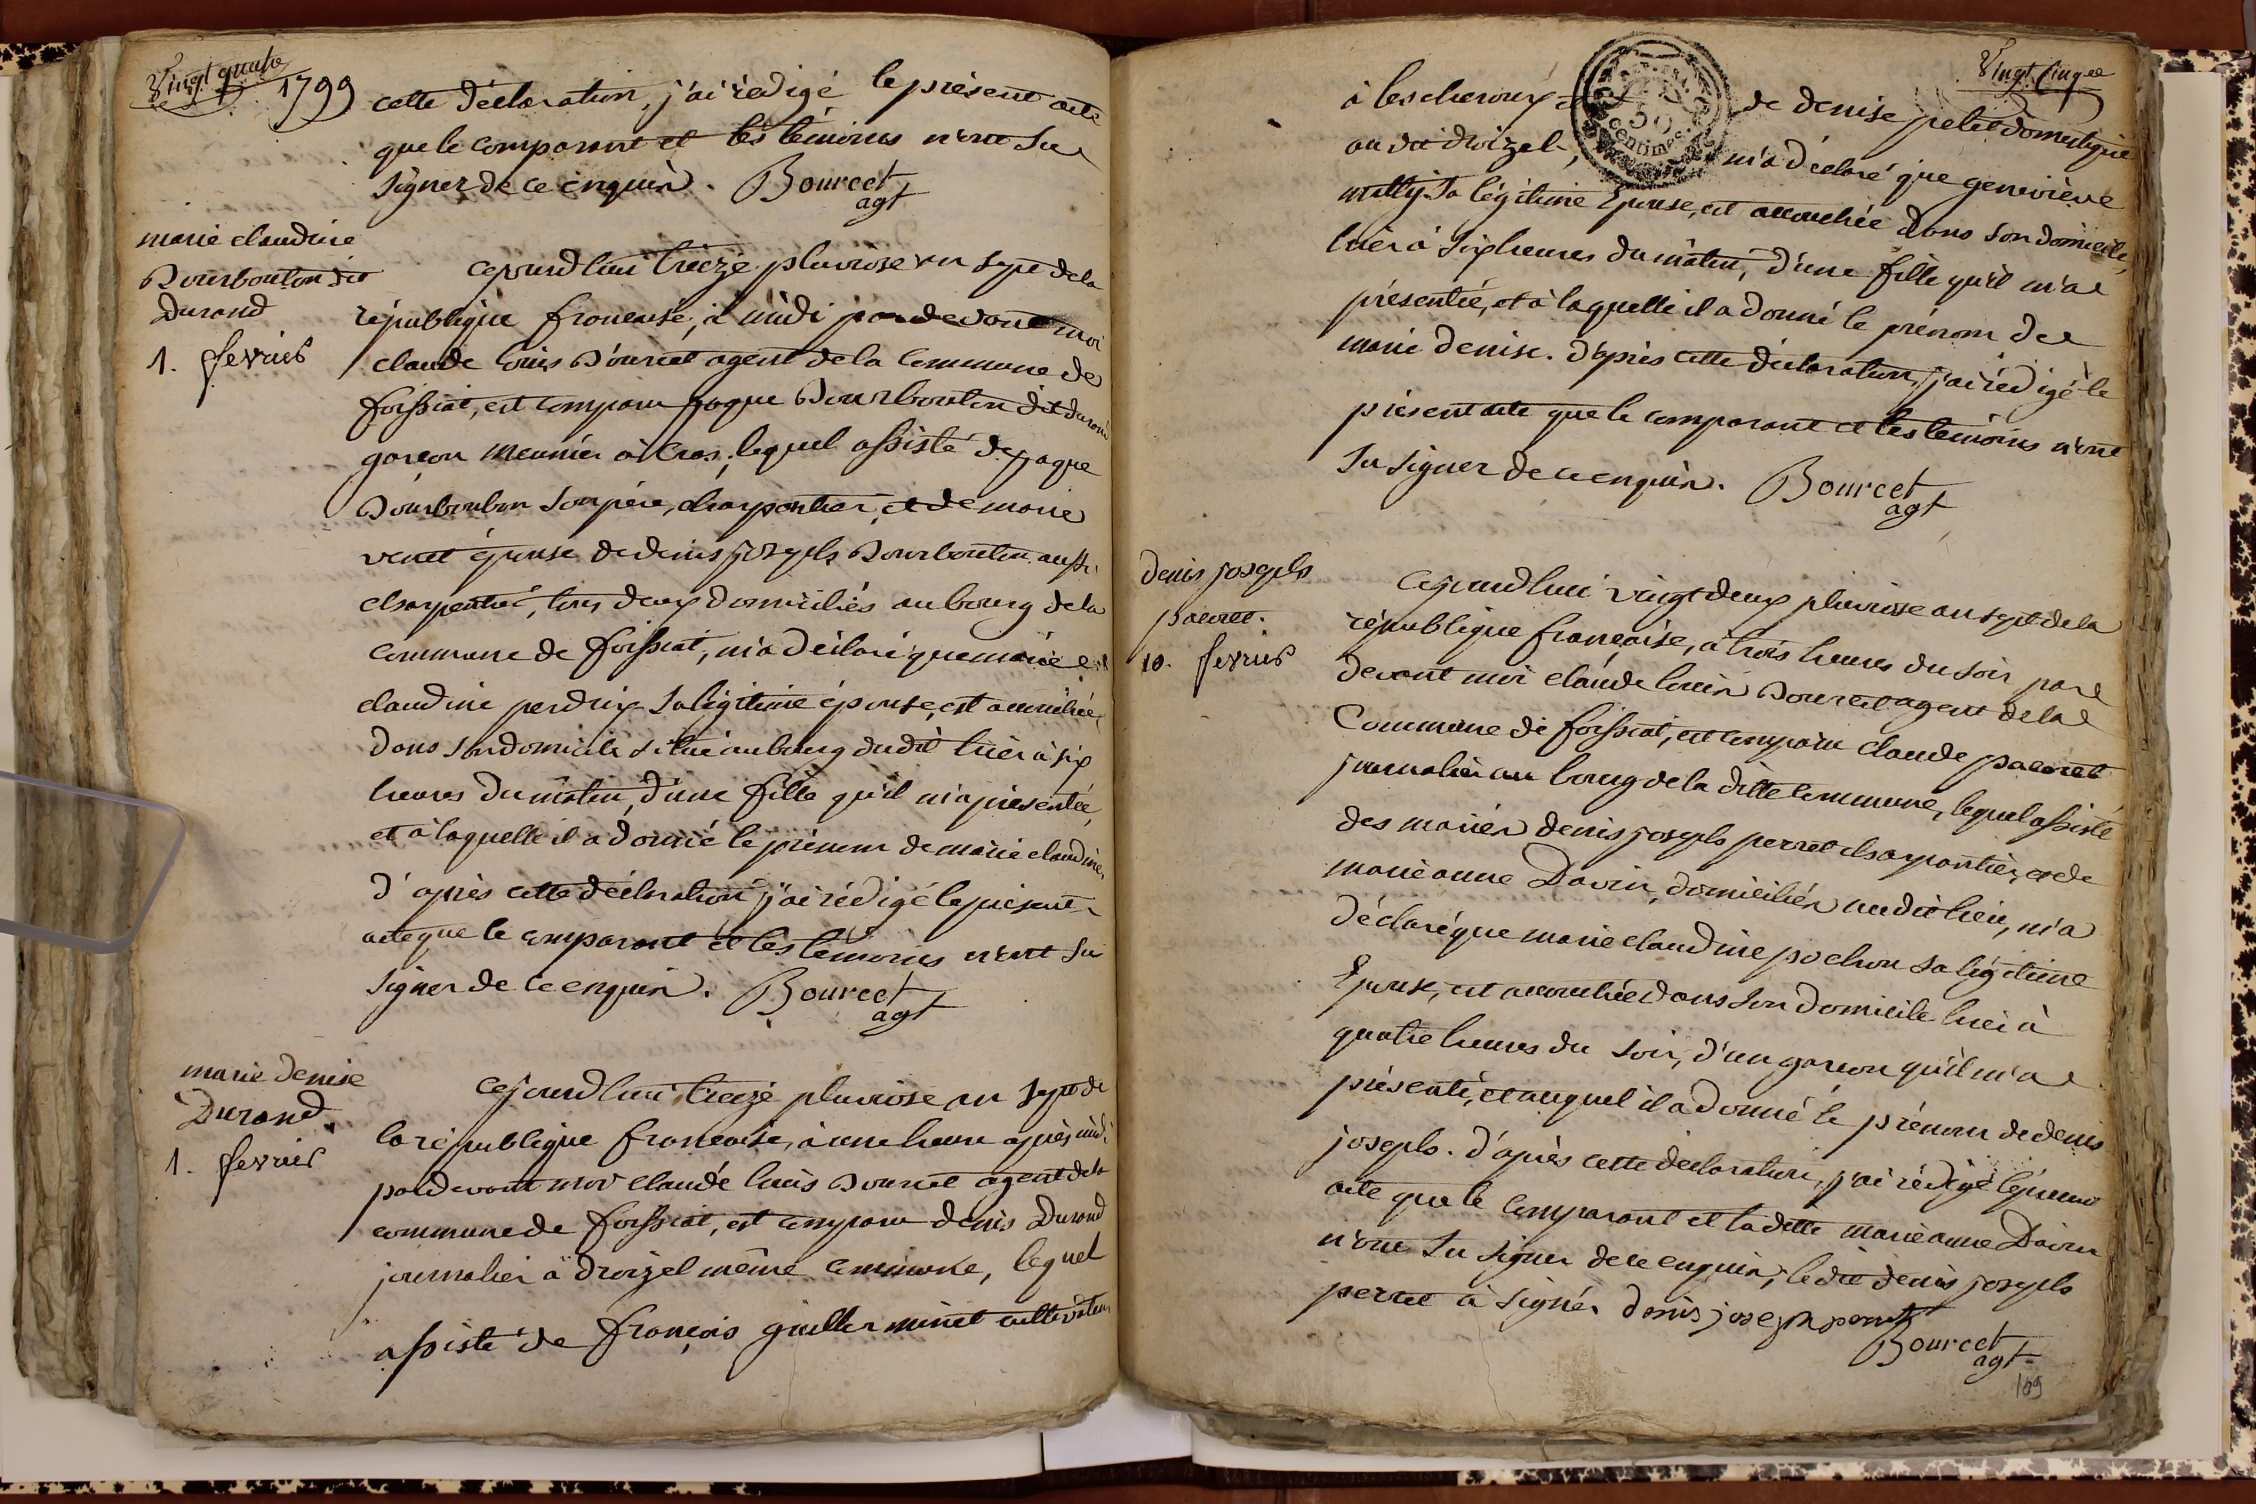 Vingt quatre
1799
cette déclaration, j'ai rédigé le présent acte
que le comparant et les témoins n'ont su
signer de ce enquis. Bourcet
agt
marie claudine
Bourbouton dit
Durand
1. fevrier
cejourd'hui treize pluviose an sept de la
république françoise, à midi par devant moi
claude louis Bourcet agent de la commune de
foissiat, est comparu jaque Bourbouton dit durand
garçon meunier à cras, lequel assisté de jaque
Bourbouton son père, charpentier, et de marie
venet épouse de denis joseph Bourbouton aussi
charpentier, tous deux domiciliés au bourg de la
commune de foissiat, m'a déclaré que marie
claudine perdrix sa légitime épouse, est accouchée
dans son domicile situé au bourg dudit hier à six
heures du matin, d'une fille qu'il m'a présentée,
et à laquelle il a donné le prénom de marie claudine,
d'après cette déclaration j'ai rédigé le présent
acte que le comparant et les témoins n'ont su
signer de ce enquis. Bourcet
agt
marie denise
Durand.
1. fevrier
cejourd'hui treize pluviose an sept de
la république françoise, à une heure après midi
par devant moi claude louis Bourcet agent de la
commune de foissiat, est comparu denis Durand
journalier à droizel même commune, lequel
assisté de françois guillerminet cultivateur
Vingt cinq
à lescheroux, et de denise petit domestique
au dit droizel, m'a déclaré que geneviève
sa légitime Epouse, est accouchée dans son domicile,
hier à six heures du matin, d'une fille qu'il m'a
présentée, et à laquelle il a donné le prénom de
marie denise. d'après cette déclaration, j'ai rédigé le
présent acte que le comparant et les témoins n'ont
su signer de ce enquis. Bourcet
agt
50
centimes
denis joseph
pacoret.
10. fevrier
cejourd'hui vingt deux pluviose an sept de la
république françoise, à trois heures du soir par
devant moi claude louis Bourcet agent de la
Commune de foissiat, est comparu claude pacoret
journalier au bourg de la ditte commune, lequel assisté
des mariés denis joseph perret charpentier, et de
marie anne Davin, domiciliés au dit lieu, m'a
déclaré que marie claudine pochon sa légitime
Epouse, est accouchée dans son domicile hier à
quatre heures du soir, d'un garçon qu'il m'a
présenté, et auquel il a donné le prénom de denis
joseph. d'après cette déclaration, j'ai rédigé le présent
acte que le comparant et la ditte marie anne Davin
n'ont su signer de ce enquis; le dit denis joseph
perret a signé. denis joseph perret
Bourcet
agt
109